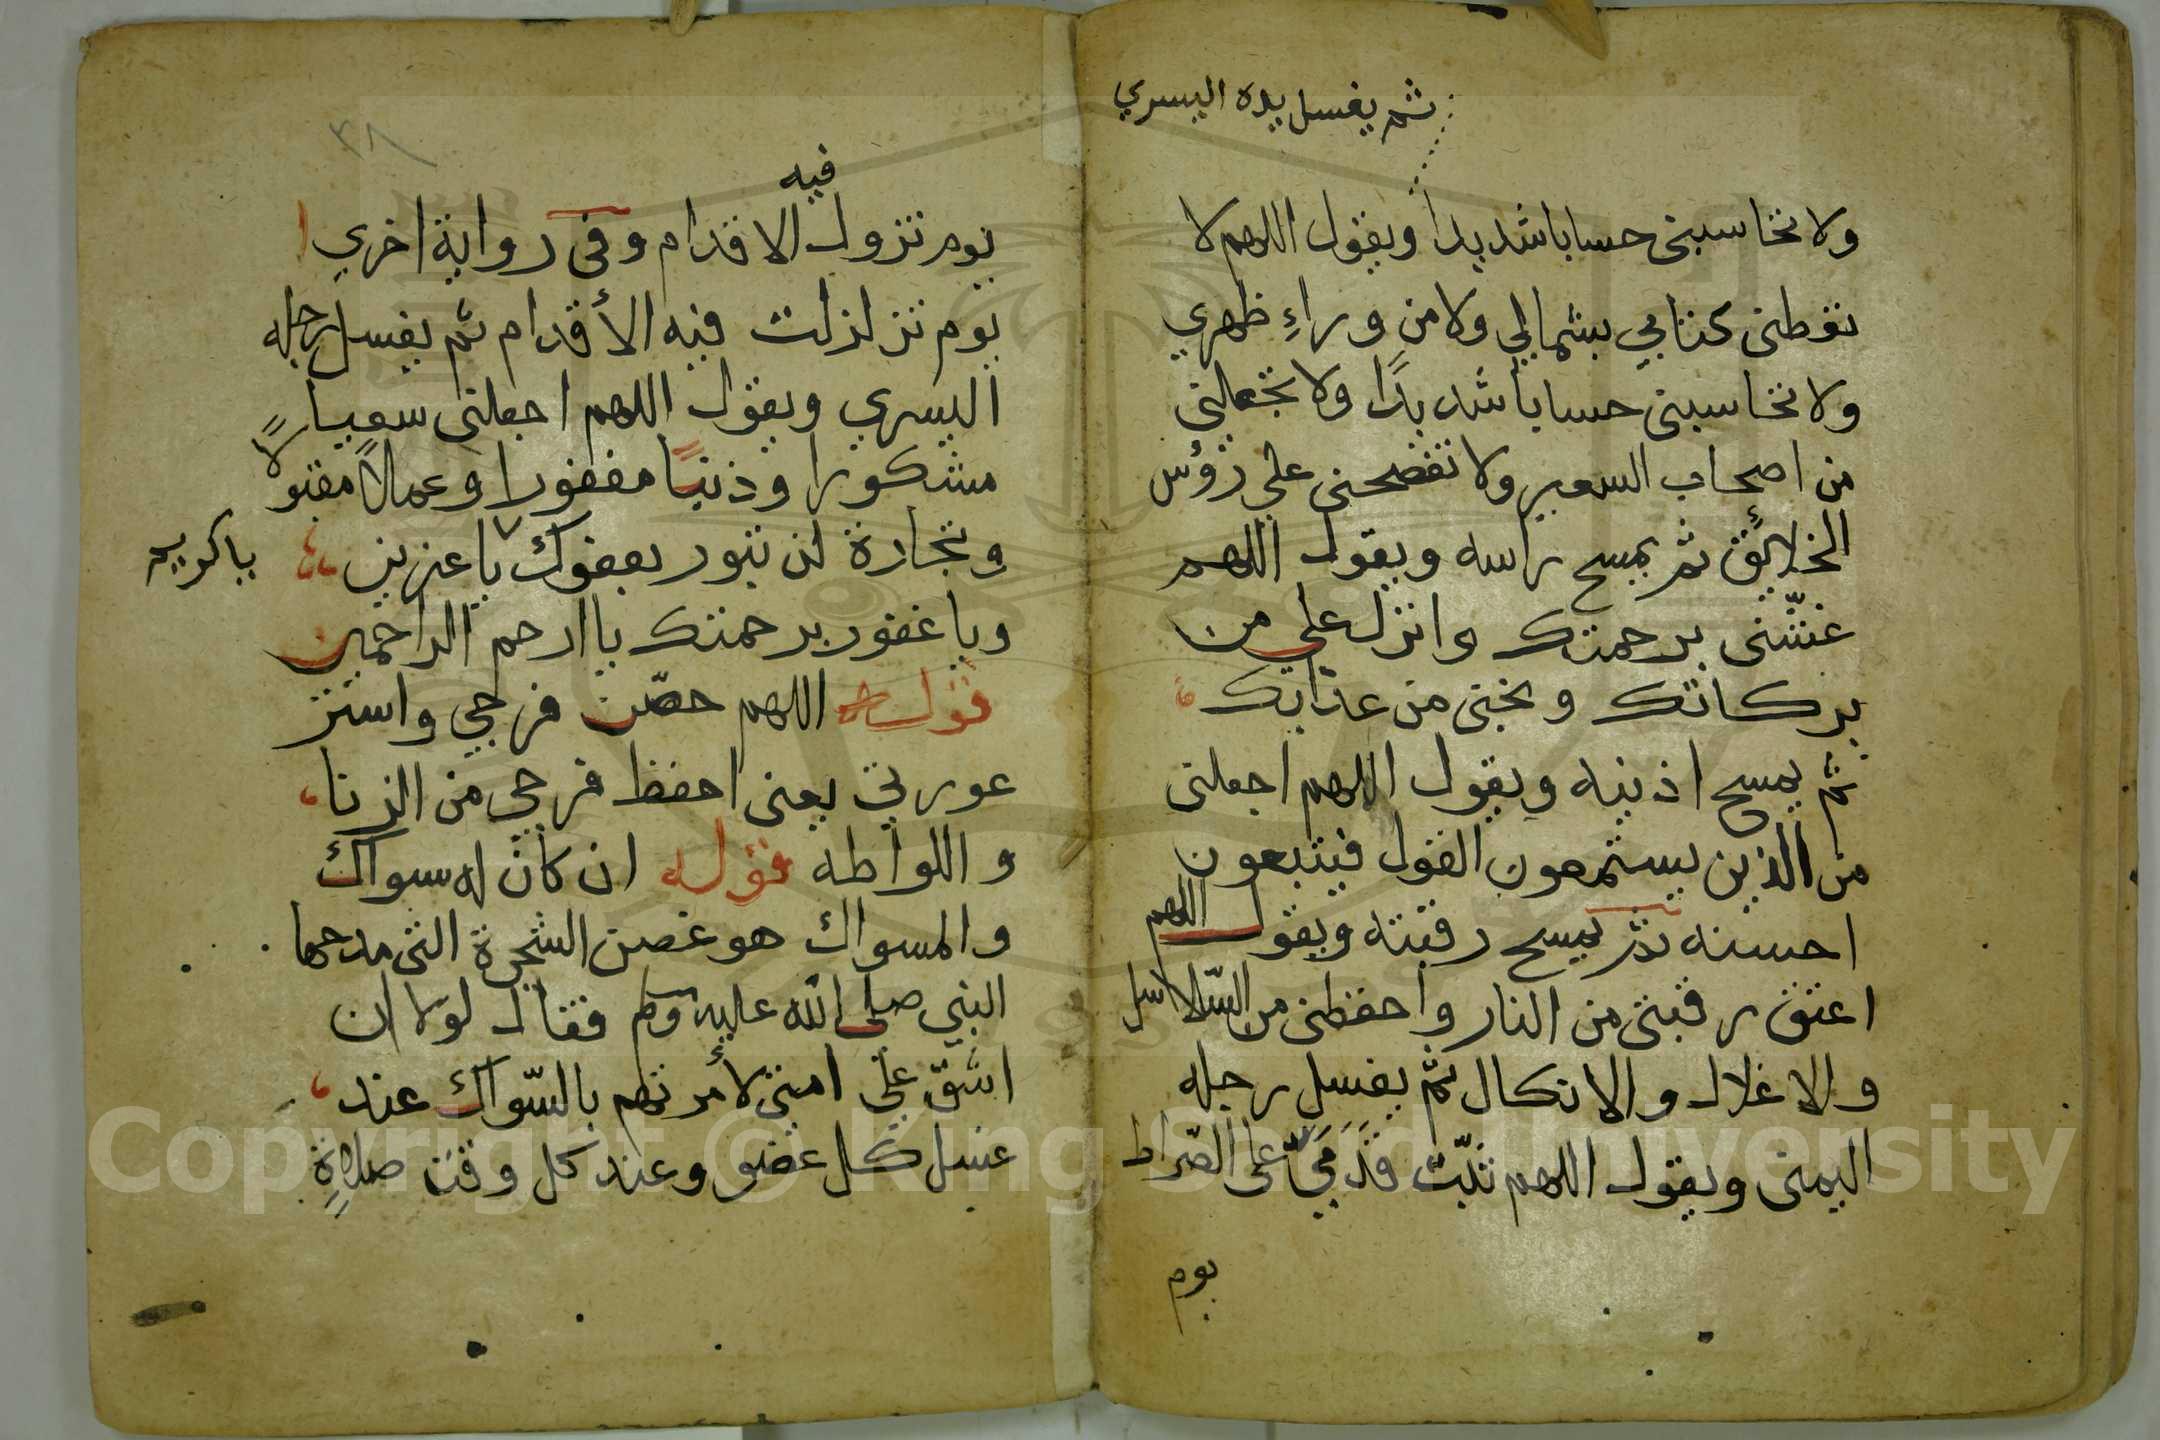 ثم يغسل يده اليسري
ولا تحاسبنى حسابا شديدا ويقول اللهم لا
تعطنى كتابي بشمالي ولا من وراءِ ظهري
ولا تحاسبنى حسابا شديدًا ولا تجعلنى
من اصحاب السعير ولا تفضحنى علي رؤس
الخلائق ثم يمسح راسه ويقول اللهم
غشّنى برحمتك وانزل علي من
بركاتك ونجنى من عذابك
ثم يمسح اذنيه ويقول اللهم اجعلنى
من الذين يستمعون القول فيتبعون
احسنه ثم يمسح رقبته ويقول اللهم
اعتق رقبتى من النار واحفظنى من السّلاسل
والاغلال والانكال ثم يغسل رجله
اليمنى ويقول اللهم ثبّت قَدَمَيَّ على الصّراط
يوم
٣٨
فيه
يوم تزول الاقدام وفى رواية اخري
يوم تزلزلت فيه الأقدام ثم يغسل رجله
اليسري ويقول اللهم اجعلنى سعيا
مشكورا وذنبًا مغفورا وعملاً مقبولاً
وتجارة لن تبور بعفوك يا عزيز
يا كريم
ويا غفور برحمتك يا ارحم الراحمين
قوله اللهم حصّن فرجي واستر
عورتي يعنى احفظ فرجي من الزنا
واللواطه قوله ان كان له سواك
والمسواك هو غصن الشجرة التى مدحها
النبي صلى الله عليه وسلم فقال لولا ان
اشق علي امتي لأمرتهم بالسّواك عند
غسل كل عضو وعند كل وقت صلاةٍ
Copyright © King Saud University